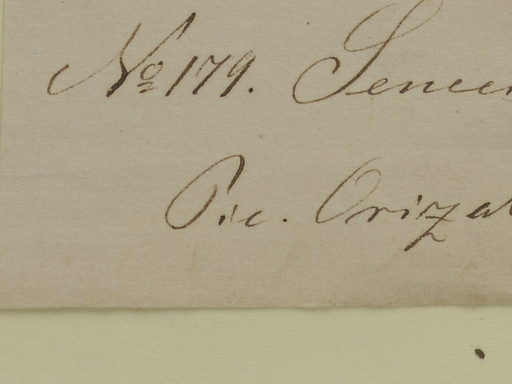 No 179. Senec
Pic. Oriza